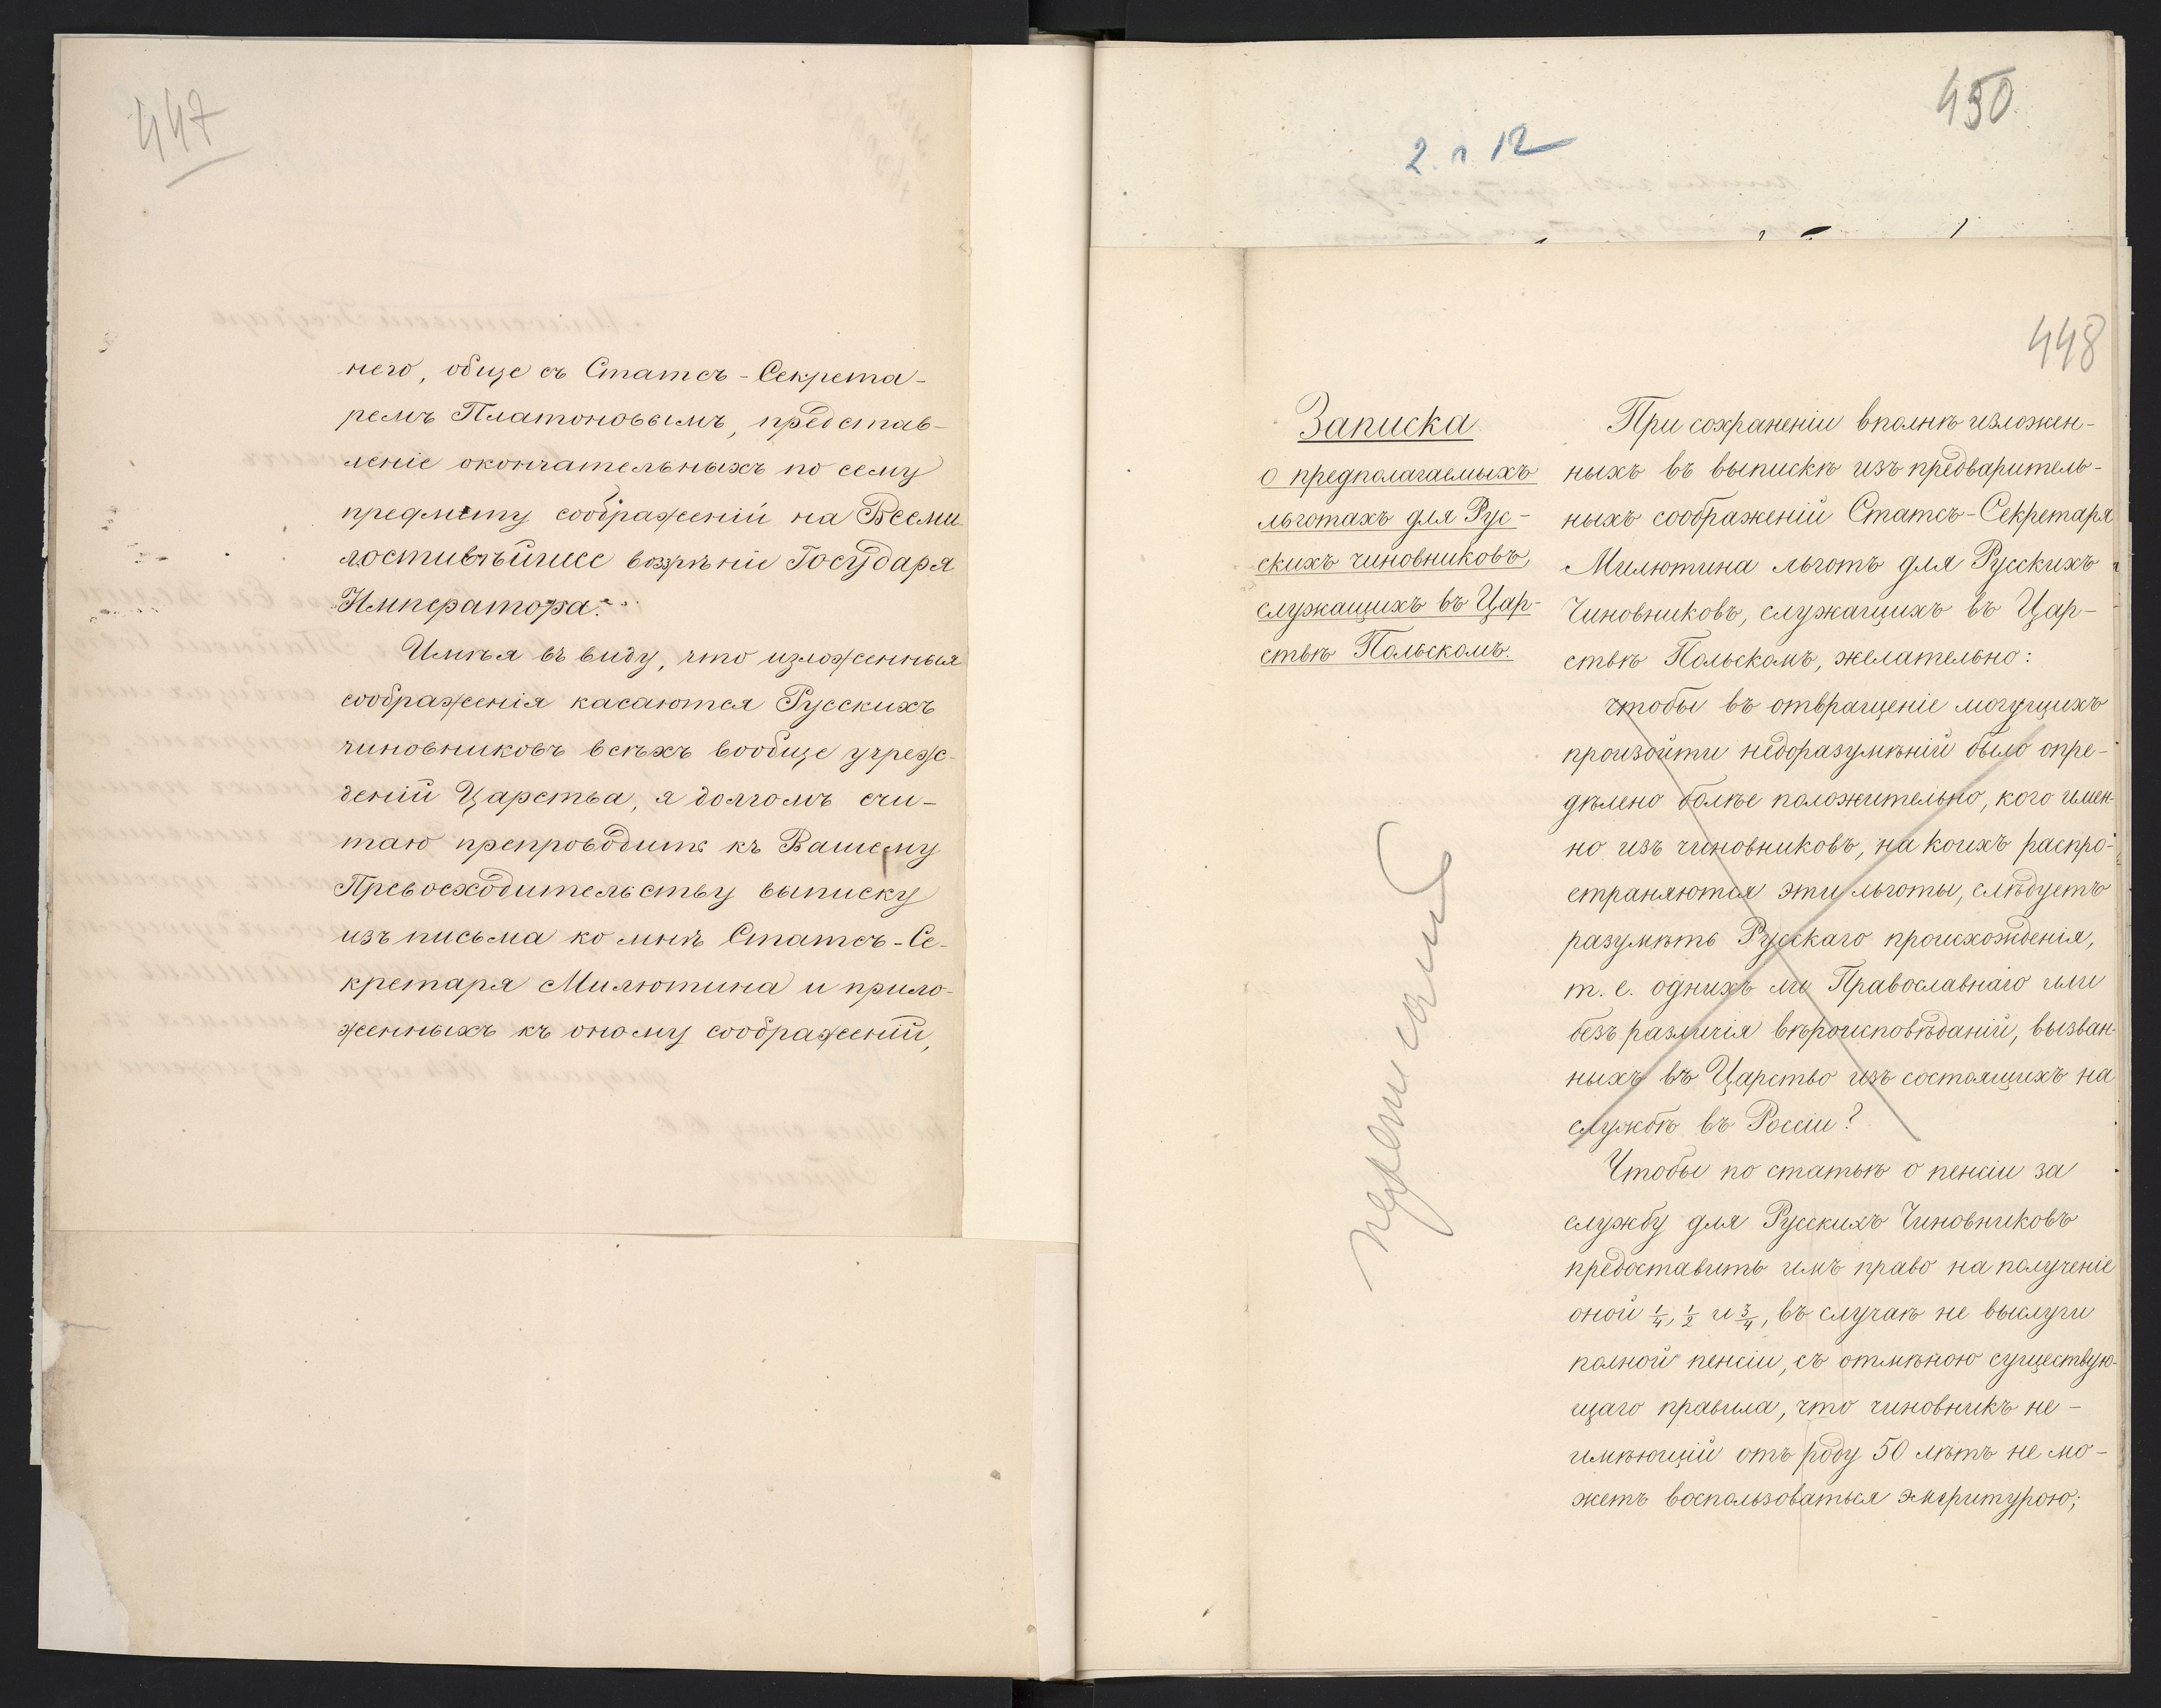 447
него, обще съ Статсъ-Секрета-
ремъ Платоновымъ, представ-
леніе окончательныхъ по сему
предмету соображеній на Всеми-
лостивѣйшее воззрѣніе Государя
Императора.
Имѣя въ виду, что изложенныя
соображенія касаются Русскихъ
чиновниковъ всѣхъ вообще учреж-
деній Царства, я долгомъ счи-
таю препроводить къ Вашему
Превосходительству выписку
изъ письма ко мнѣ Статсъ-Се-
кретаря Милютина и прило-
женныхъ къ оному соображеній,
450
2. п 12
448
Записка
о предполагаемыхъ
льготахъ для Рус-
скихъ чиновниковъ,
служащихъ въ Цар-
ствѣ Польскомъ.
При сохраненіи вполнѣ изложен-
ныхъ въ выпискѣ изъ предваритель-
ныхъ соображеній Статсъ-Секретаря
Милютина льготъ для Русскихъ
Чиновниковъ, служащихъ въ Цар-
ствѣ Польскомъ, желательно:
чтобы въ отвращеніе могущихъ
произойти недоразумѣній было опре-
дѣлено болѣе положительно, кого имен-
но изъ чиновниковъ, на коихъ распро-
страняются эти льготы, слѣдуетъ
разумѣть Русскаго происхожденія,
т. е. однихъ ли Православнаго или
безъ различія вѣроисповѣданій, вызван-
ныхъ въ Царство изъ состоящихъ на
службѣ въ Россіи?
Чтобы по статьѣ о пенсіи за
службу для Русскихъ Чиновниковъ
предоставить имъ право на полученіе
оной 1/4, 1/2 и 3/4, въ случаѣ не выслуги
полной пенсіи, съ отмѣною существую-
щаго правила, что чиновникъ не-
имѣющій отъ роду 50 лѣтъ не мо-
жетъ воспользоваться эмеритурою;